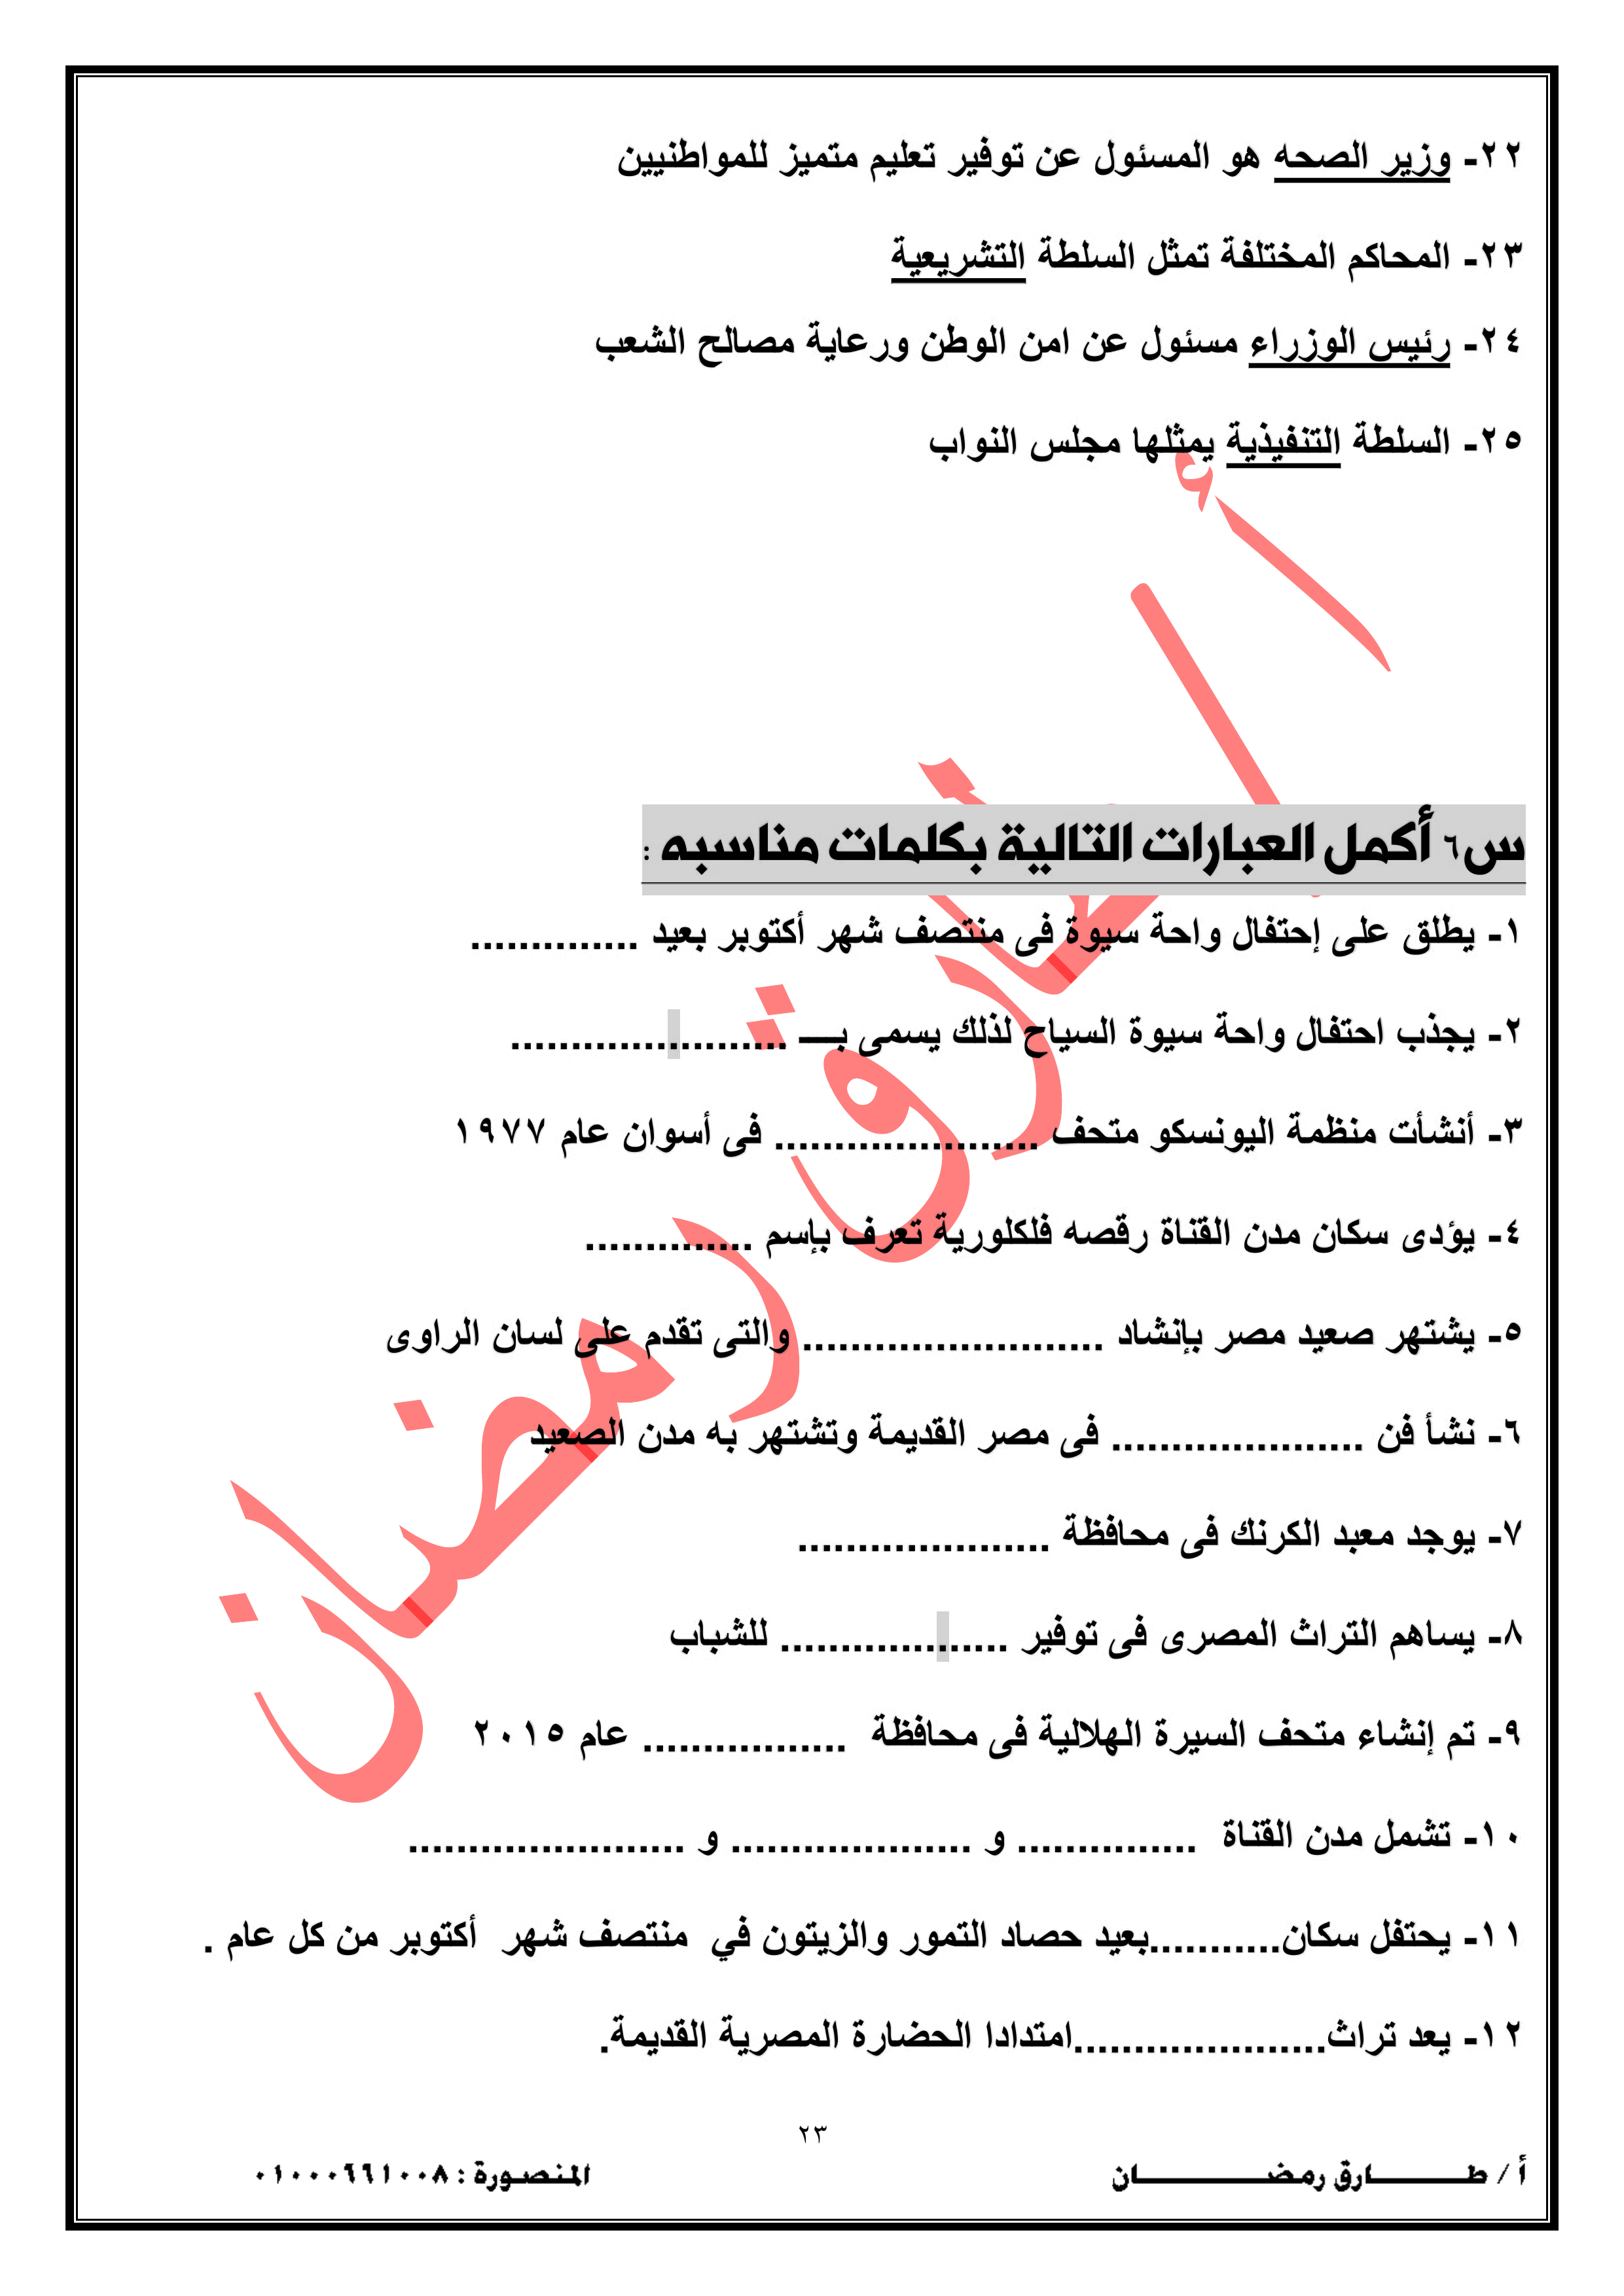 ٢٢- وزير الصحه هو المسئول عن توفير تعليم متميز للمواطنيين
٢٣- المحاكم المختلفة تمثل السلطة التشريعية
٢٤- رئيس الوزراء مسئول عن امن الوطن ورعاية مصالح الشعب
٢٥- السلطة التنفيذية يمثلها مجلس النواب
س٦ أكمل العبارات التالية بكلمات مناسبه :
١- يطلق على إحتفال واحة سيوة فى منتصف شهر أكتوبر بعيد ..............
٢- يجذب احتفال واحة سيوة السياح لذلك يسمى بـــ .......................
٣- أنشأت منظمة اليونسكو متحف ...................... فى أسوان عام ١٩٧٧
٤- يؤدى سكان مدن القناة رقصه فلكلورية تعرف بإسم ..............
٥- يشتهر صعيد مصر بإنشاد ......................... والتى تقدم على لسان الراوى
٦- نشأ فن ..................... فى مصر القديمة وتشتهر به مدن الصعيد
٧- يوجد معبد الكرنك فى محافظة .....................
٨- يساهم التراث المصرى فى توفير ................... للشباب
٩- تم إنشاء متحف السيرة الهلالية فى محافظة ................. عام ٢٠١٥
١٠- تشمل مدن القناة ............... و .................... و .......................
١١- يحتفل سكان...........بعيد حصاد التمور والزيتون في منتصف شهر أكتوبر من كل عام .
١٢- يعد تراث.....................امتدادا الحضارة المصرية القديمة.
أ / طارق رمضان
٢٣
أ / طـــــــــارق رمضـــــــــــان المنصورة : ٠١٠٠٠٦٦١٠٠٨